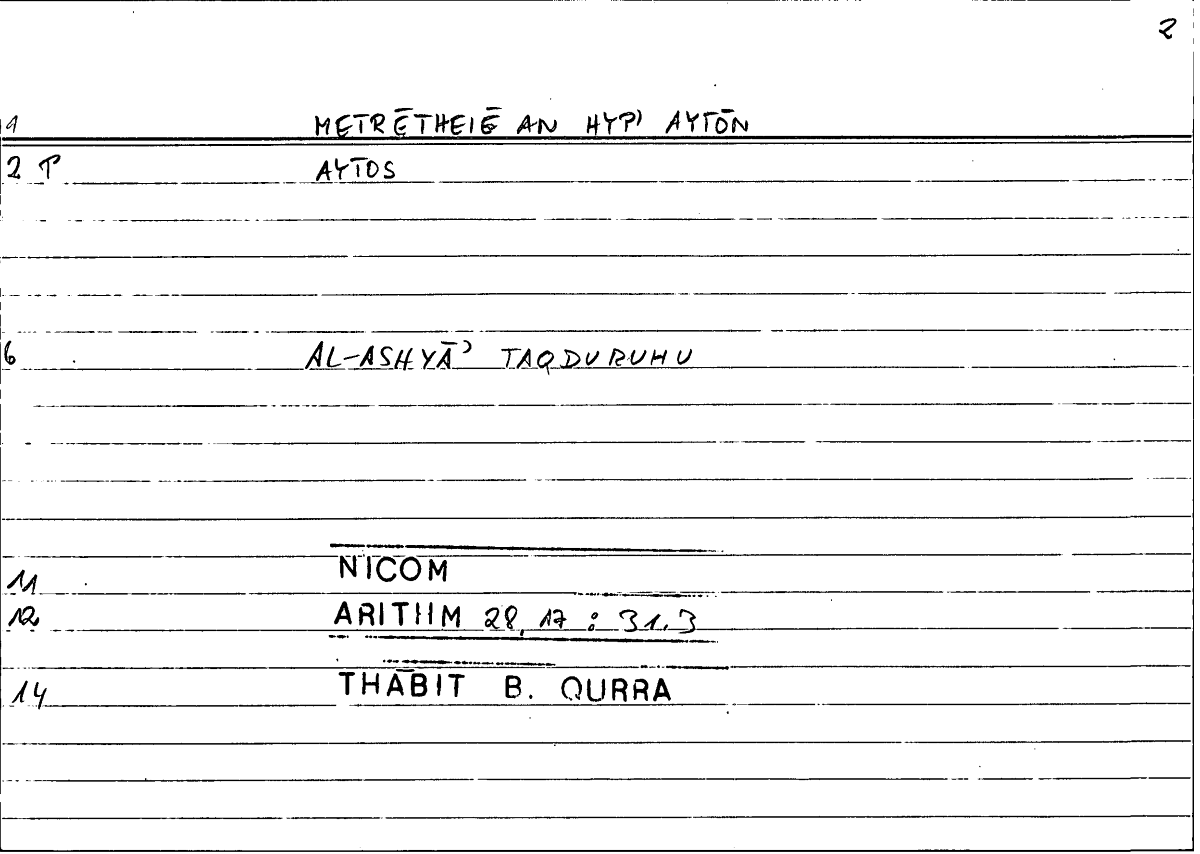 2
1 METRĒTHEIĒ AN HYP' AYTŌN
2 P AYTOS
6 AL-ASHYĀʾ TAQDURUHU
11 NICOM
12 ARITHM 28,17 : 31.3
14 THĀBIT B. QURRA